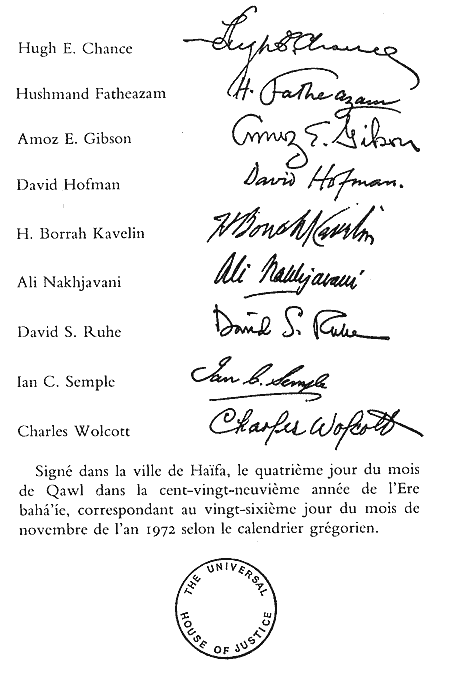 Hugh E. Chance Hugh E Chance
Hushmand Fatheazam H. Fatheazam
Amoz E. Gibson Amoz E. Gibson
David Hofman David Hofman.
H. Borrah Kavelin H Borrah Kavelin
Ali Nakhjavani Ali Nakhjavani
David S. Ruhe David S. Ruhe
Ian C. Semple Ian C. Semple
Charles Wolcott Charles Wolcott
Signé dans la ville de Haïfa, le quatrième jour du mois
de Qawl dans la cent-vingt-neuvième année de l'Ere
bahá'ie, correspondant au vingt-sixième jour du mois de
novembre de l'an 1972 selon le calendrier grégorien.
THE UNIVERSAL
HOUSE OF JUSTICE